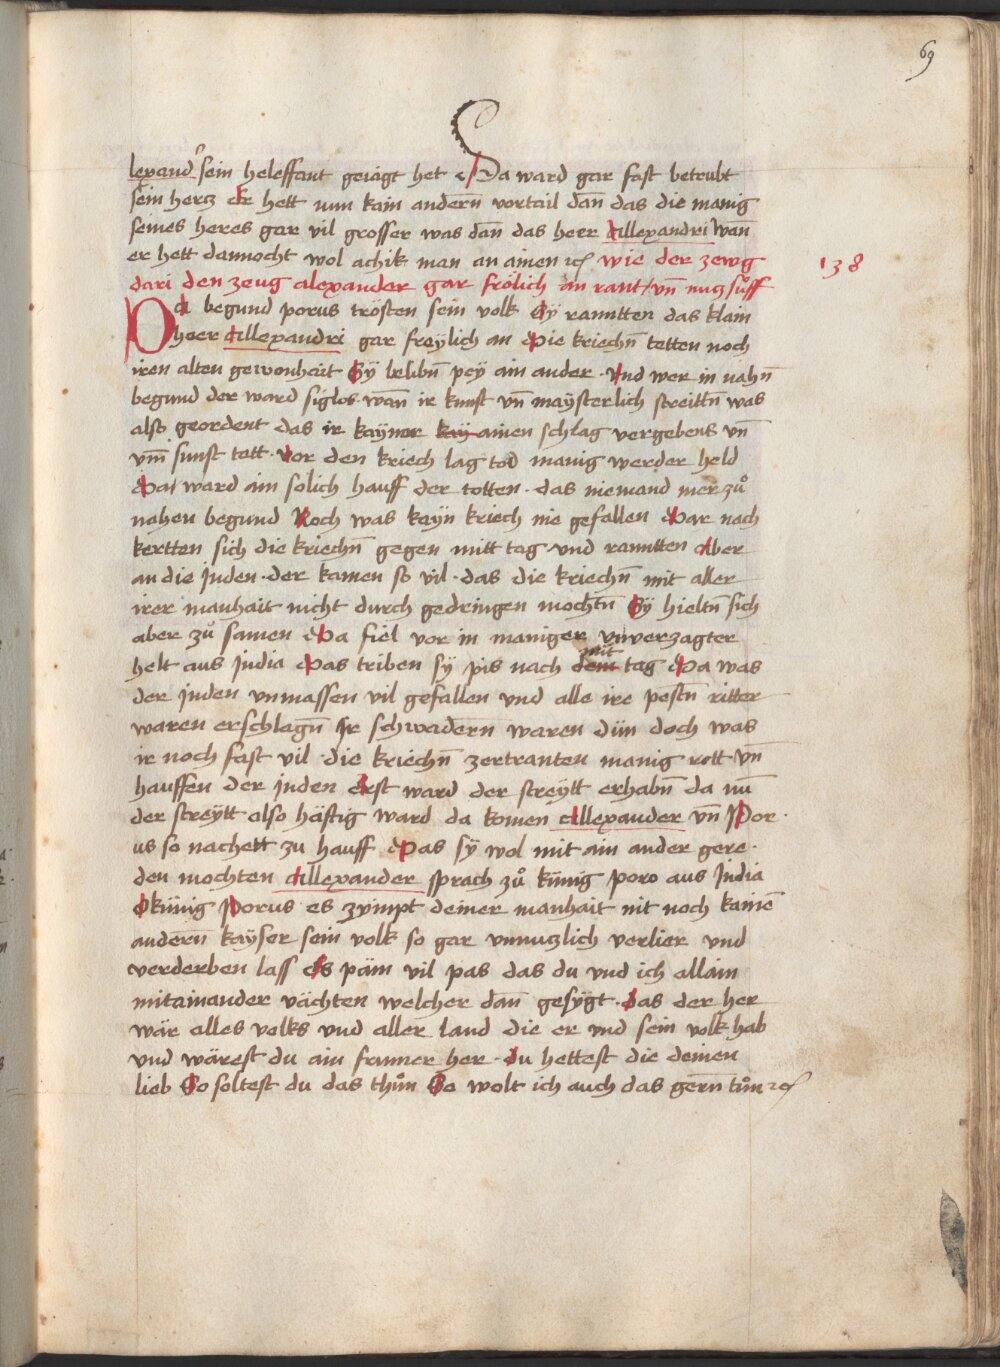 69
lexand͛ sein heleffant geiagt het Da ward gar fast betrubt
sein hercz Er hett nun kain andern̄ vortail dan̄ das die manig
seines heres gar vil grosser was dan̄ das heer Allexandri Wan̄
er hett dannocht wol achik man an ainen ⁊c wie der zewg
138
dari den zeug alexander gar frölich an rant / vn̄ nucz
Da begund porus trösten sein volk Sÿ rantten das klain
heer Allexandri gar freÿlich an Die kriechn̄ tetten noch
iren alten gewonhait Sÿ belibn̄ peÿ ain ander · Und wer in nahn̄
begund der ward siglos · wan̄ ir kunst vn̄ maÿsterlich streittn̄ was
also geordent das ir kaÿner kaÿ ainen schlag vergebens vn̄
vm̄ sunst tett · Vor den kriech lag tod manig werder held
Da ward ain solich hauff der totten · das niemand mer zů
nahen begund Noch was kaÿn kriech nie gefallen Dar nach
kertten sich die kriechn̄ gegen mitt tag vnd rantten Aber
an die Juden · der kamen so vil · das die kriechn̄ mit aller
irer manhait nicht durch gedringen mochtn̄ Sÿ hieltn̄ sich
aber zů samen Da fiel vor in maniger vnverzagter
helt aus India Das triben sÿ pis nach dem mit tag Da was
der Juden vnmassen vil gefallen vnd alle ire pestn̄ ritter
waren erschlagn̄ Ir schwadern̄ waren dün doch was
ir noch fast vil · die kriechn̄ zertranten manig rott vn̄
hauffen der Juden Erst ward der streÿtt erhabn̄ da nū
der streÿtt also häftig ward da komen Allexander vn̄ Por ·
us so nachett zu hauff Das sÿ wol mit ain ander gere ·
den mochten Allexander sprach zů künig poro aus India
O künig Porus es zÿmpt deiner manhait nit noch kainē
andern̄ kaÿser sein volk so gar vnnuczlich verlier vnd
verderben lass Es päm vil pas das du vnd ich allain
mitainander vächten welcher dan̄ gesÿgt · das der her
wär alles volks vnd aller land die er vnd sein volk hab
vnd wärest du ain frumer her · du hettest die deinen
lieb So soltest du das thůn So wolt ich auch das gern̄ tůn ⁊c